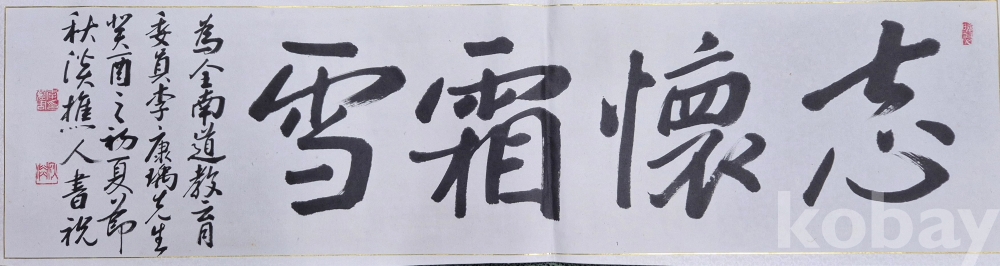 志懷霜雪
為全南道教育
委員李康瑀先生
癸酉之初夏節
秋溪樵人書祝
kobay